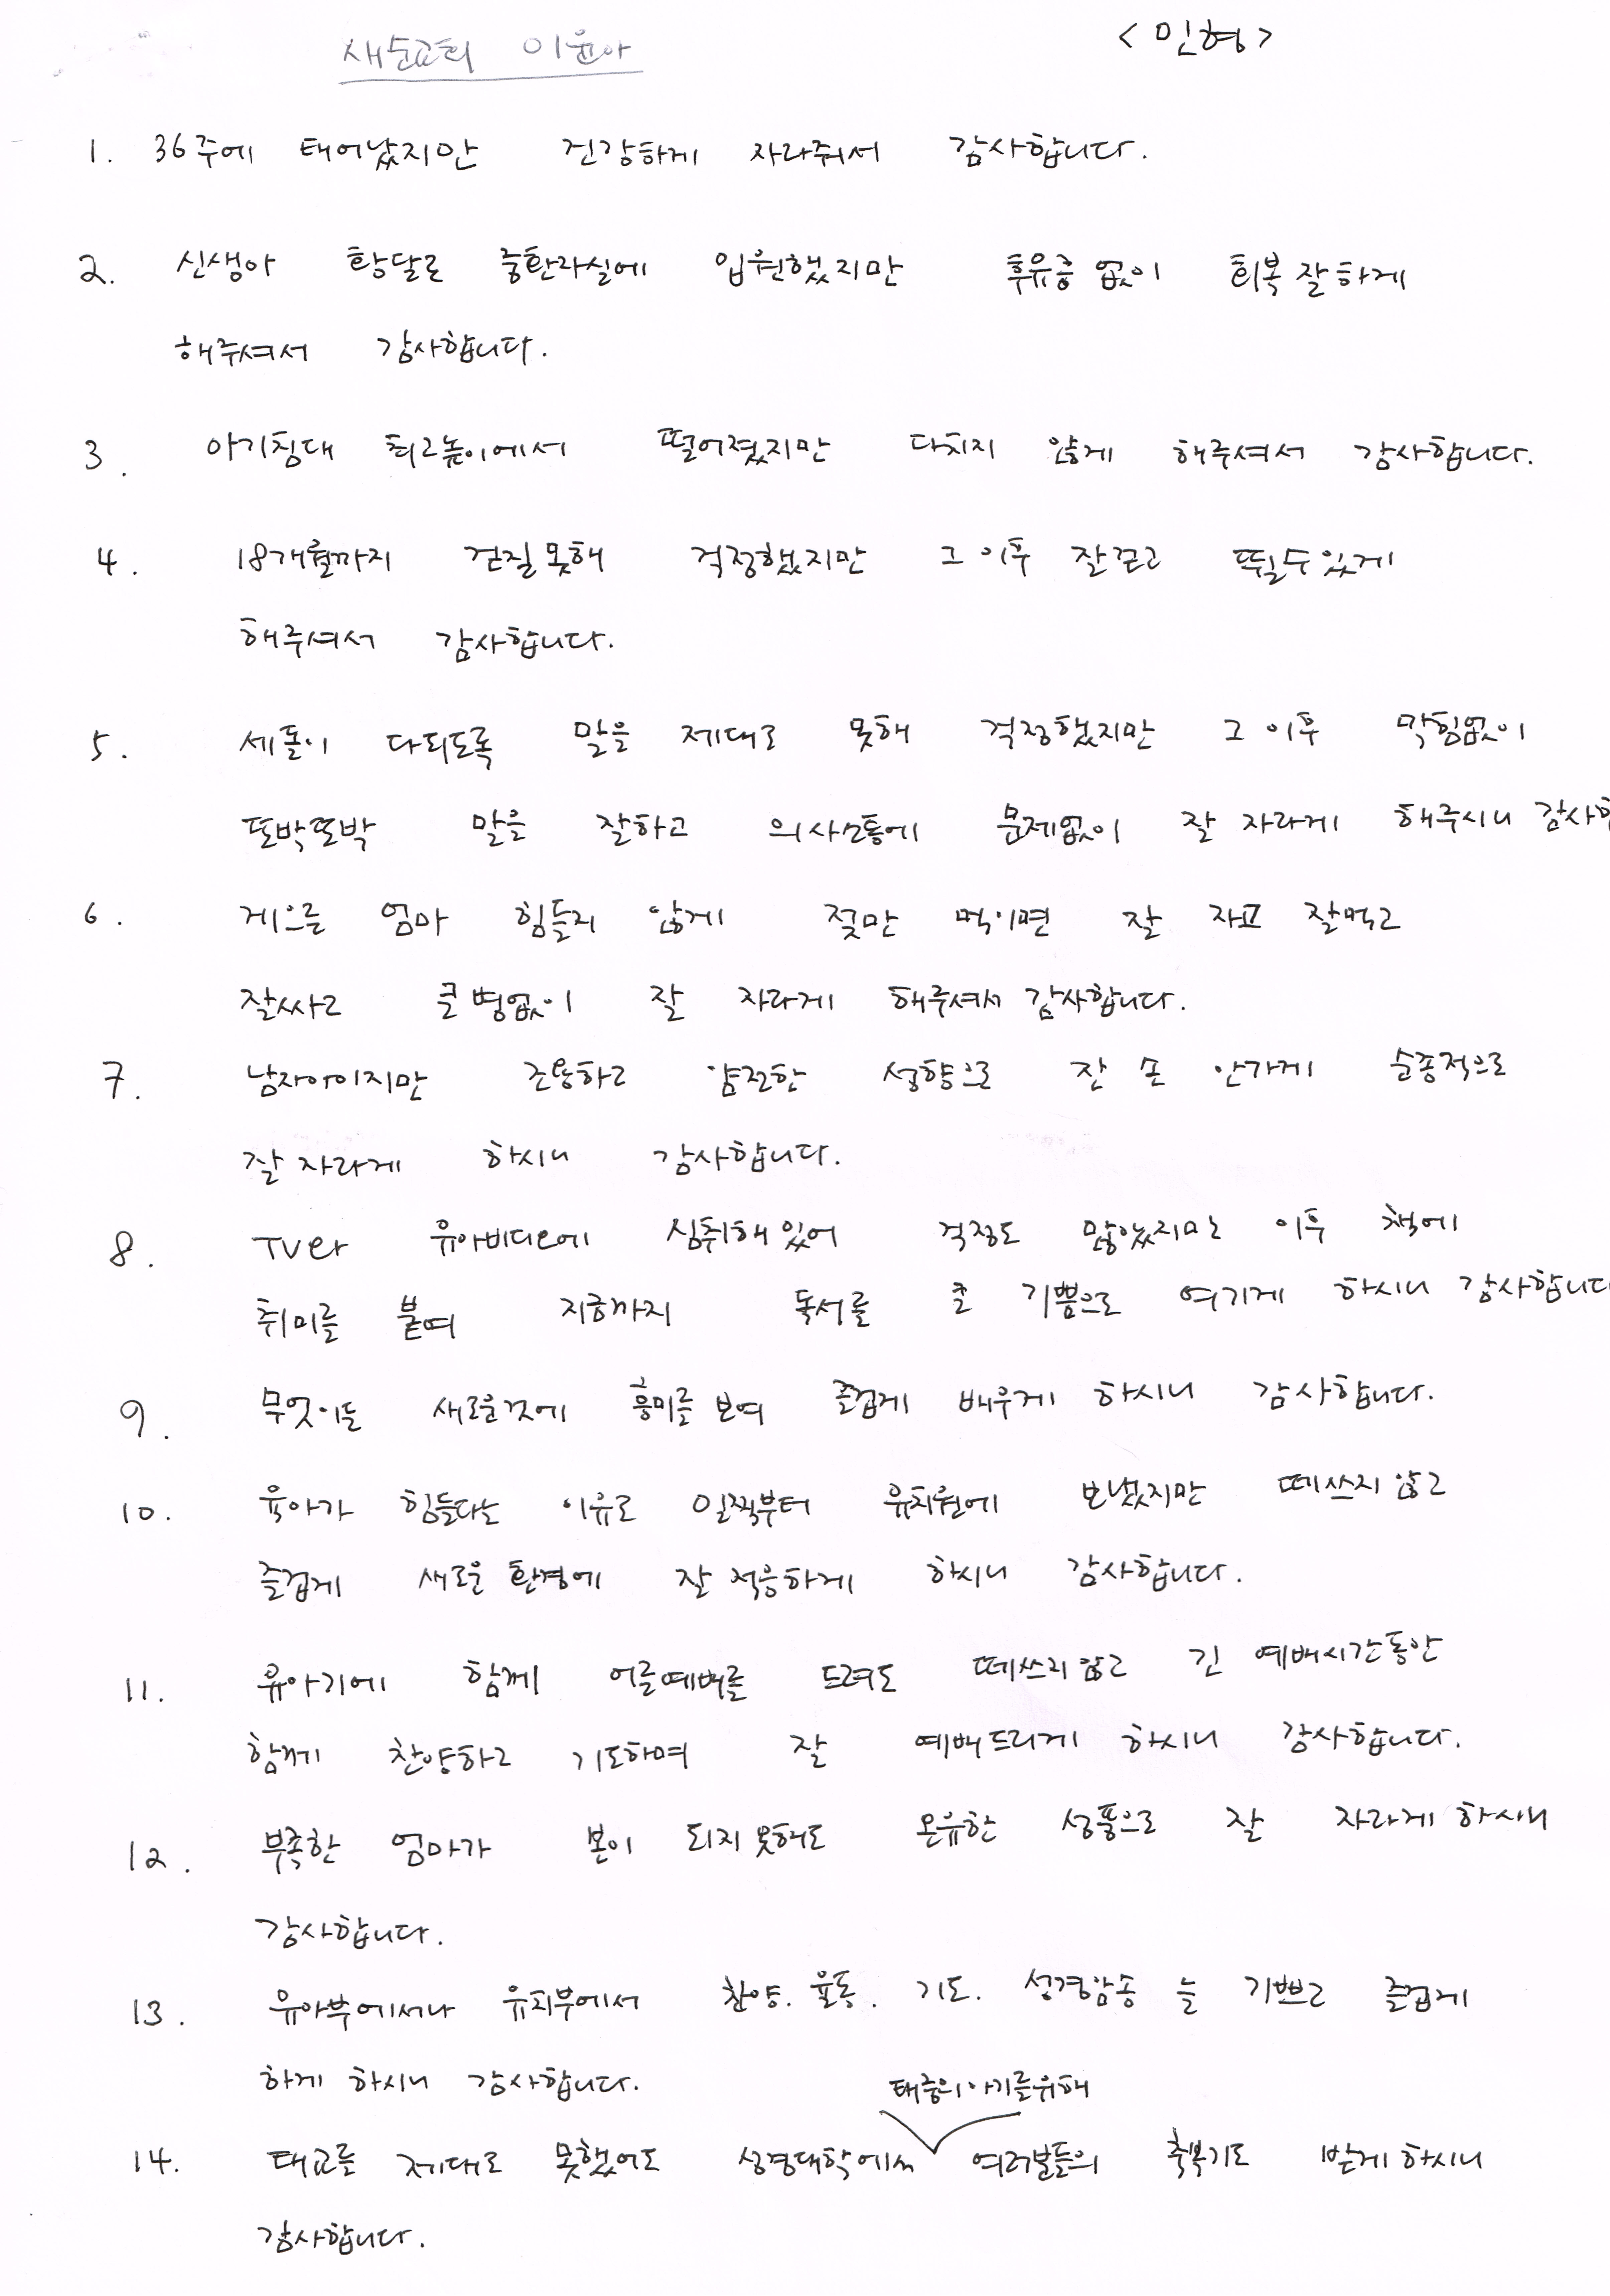 새순교회 이윤아
<민형>
1. 36주에 태어났지만 건강하게 자라줘서 감사합니다.
2. 신생아 황달로 중환자실에 입원했지만 후유증 없이 회복 잘하게
해주셔서 감사합니다.
3. 아기침대 최고높이에서 떨어졌지만 다치지 않게 해주셔서 감사합니다.
4. 18개월까지 걷질 못해 걱정했지만 그 이후 잘걷고 뛸수있게
해주셔서 감사합니다.
5. 세돌이 다되도록 말을 제대로 못해 걱정했지만 그 이후 막힘없이
또박또박 말을 잘하고 의사소통에 문제없이 잘 자라게 해주시니 감사
6. 게으른 엄마 힘들지 않게 젖만 먹이면 잘 자고 잘먹고
잘싸고 큰 병없이 잘 자라게 해주셔서 감사합니다.
7. 남자아이지만 조용하고 얌전한 성향으로 잔 손 안가게 순종적으로
잘 자라게 하시니 감사합니다.
8. TV와 유아비디오에 심취해 있어 걱정도 많았지만 이후 책에
취미를 붙여 지금까지 독서를 큰 기쁨으로 여기게 하시니 감사합니다
9. 무엇이든 새로운것에 흥미를 보여 즐겁게 배우게 하시니 감사합니다.
10. 육아가 힘들다는 이유로 일찍부터 유치원에 보냈지만 떼쓰지 않고
즐겁게 새로운 환경에 잘 적응하게 하시니 감사합니다.
11. 유아기에 함께 어른예배를 드려도 떼쓰지 않고 긴 예배시간동안
함께 찬양하고 기도하며 잘 예배드리게 하시니 감사합니다.
12. 부족한 엄마가 본이 되지 못해도 온유한 성품으로 잘 자라게 하시니
감사합니다.
13. 유아부에서나 유치부에서 찬양. 율동. 기도. 성경암송 늘 기쁘고 즐겁게
하게 하시니 감사합니다.
태중의 아기를위해
14. 태교를 제대로 못했어도 성경대학에서 여러분들의 축복기도 받게 하시니
감사합니다.